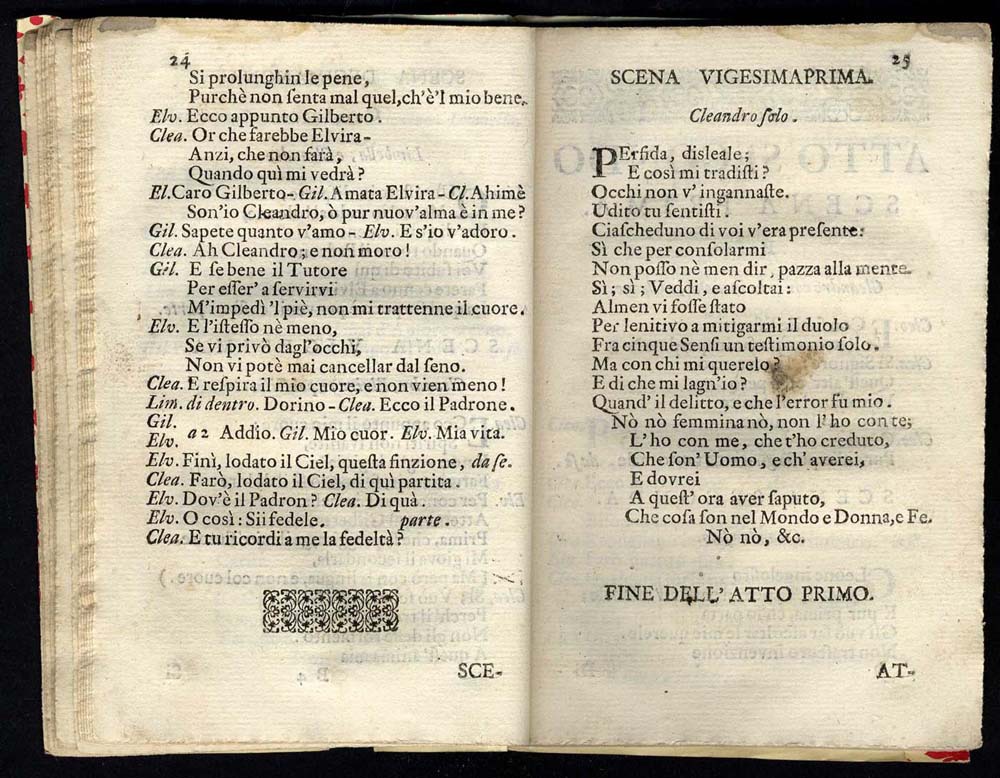 24
Si prolunghin le pene,
Purchè non ſenta mal quel, ch'è'l mio bene.
Elv. Ecco appunto Gilberto.
Clea. Or che farebbe Elvira-
Anzi, che non farà,
Quando quì mi vedrà?
El. Caro Gilberto- Gil. Amata Elvira- Cl. Ahimè
Son'io Cleandro, ò pur nuov'alma è in me?
Gil. Sapete quanto v'amo- Elv. E s'io v'adoro.
Clea. Ah Cleandro; e non moro!
Gil. E ſe bene il Tutore
Per eſſer' a ſervirvi
M'impedì 'l piè, non mi trattenne il cuore.
Elv. E l'iſteſſo nè meno,
Se vi privò dagl'occhi,
Non vi potè mai cancellar dal ſeno.
Clea. E reſpira il mio cuore, e non vien meno!
Lim. di dentro. Dorino- Clea. Ecco il Padrone.
Gil.
Elv. a 2 Addio. Gil. Mio cuor. Elv. Mia vita.
Elv. Finì, lodato il Ciel, queſta finzione, da ſe.
Clea. Farò, lodato il Ciel, di quì partita.
Elv. Dov'è il Padron? Clea. Di quà.
Elv. O così: Sii fedele. parte.
Clea. E tu ricordi a me la fedeltà?
SCE-
25
SCENA VIGESIMAPRIMA.
Cleandro ſolo.
PErfida, disleale;
E così mi tradiſti?
Occhi non v' ingannaſte.
Udito tu ſentiſti.
Ciaſcheduno di voi v'era preſente:
Sì che per conſolarmi
Non poſſo nè men dir, pazza alla mente.
Sì; sì; Veddi, e aſcoltai:
Almen vi foſſe ſtato
Per lenitivo a mitigarmi il duolo
Fra cinque Senſi un teſtimonio ſolo.
Ma con chi mi querelo?
E di che mi lagn'io?
Quand' il delitto, e che l'error fu mio.
Nò nò femmina nò, non l' ho con te;
L' ho con me, che t'ho creduto,
Che ſon' Uomo, e ch' averei,
E dovrei
A queſt' ora aver ſaputo,
Che coſa ſon nel Mondo e Donna, e Fe.
Nò nò, &c.
FINE DELL' ATTO PRIMO.
AT-